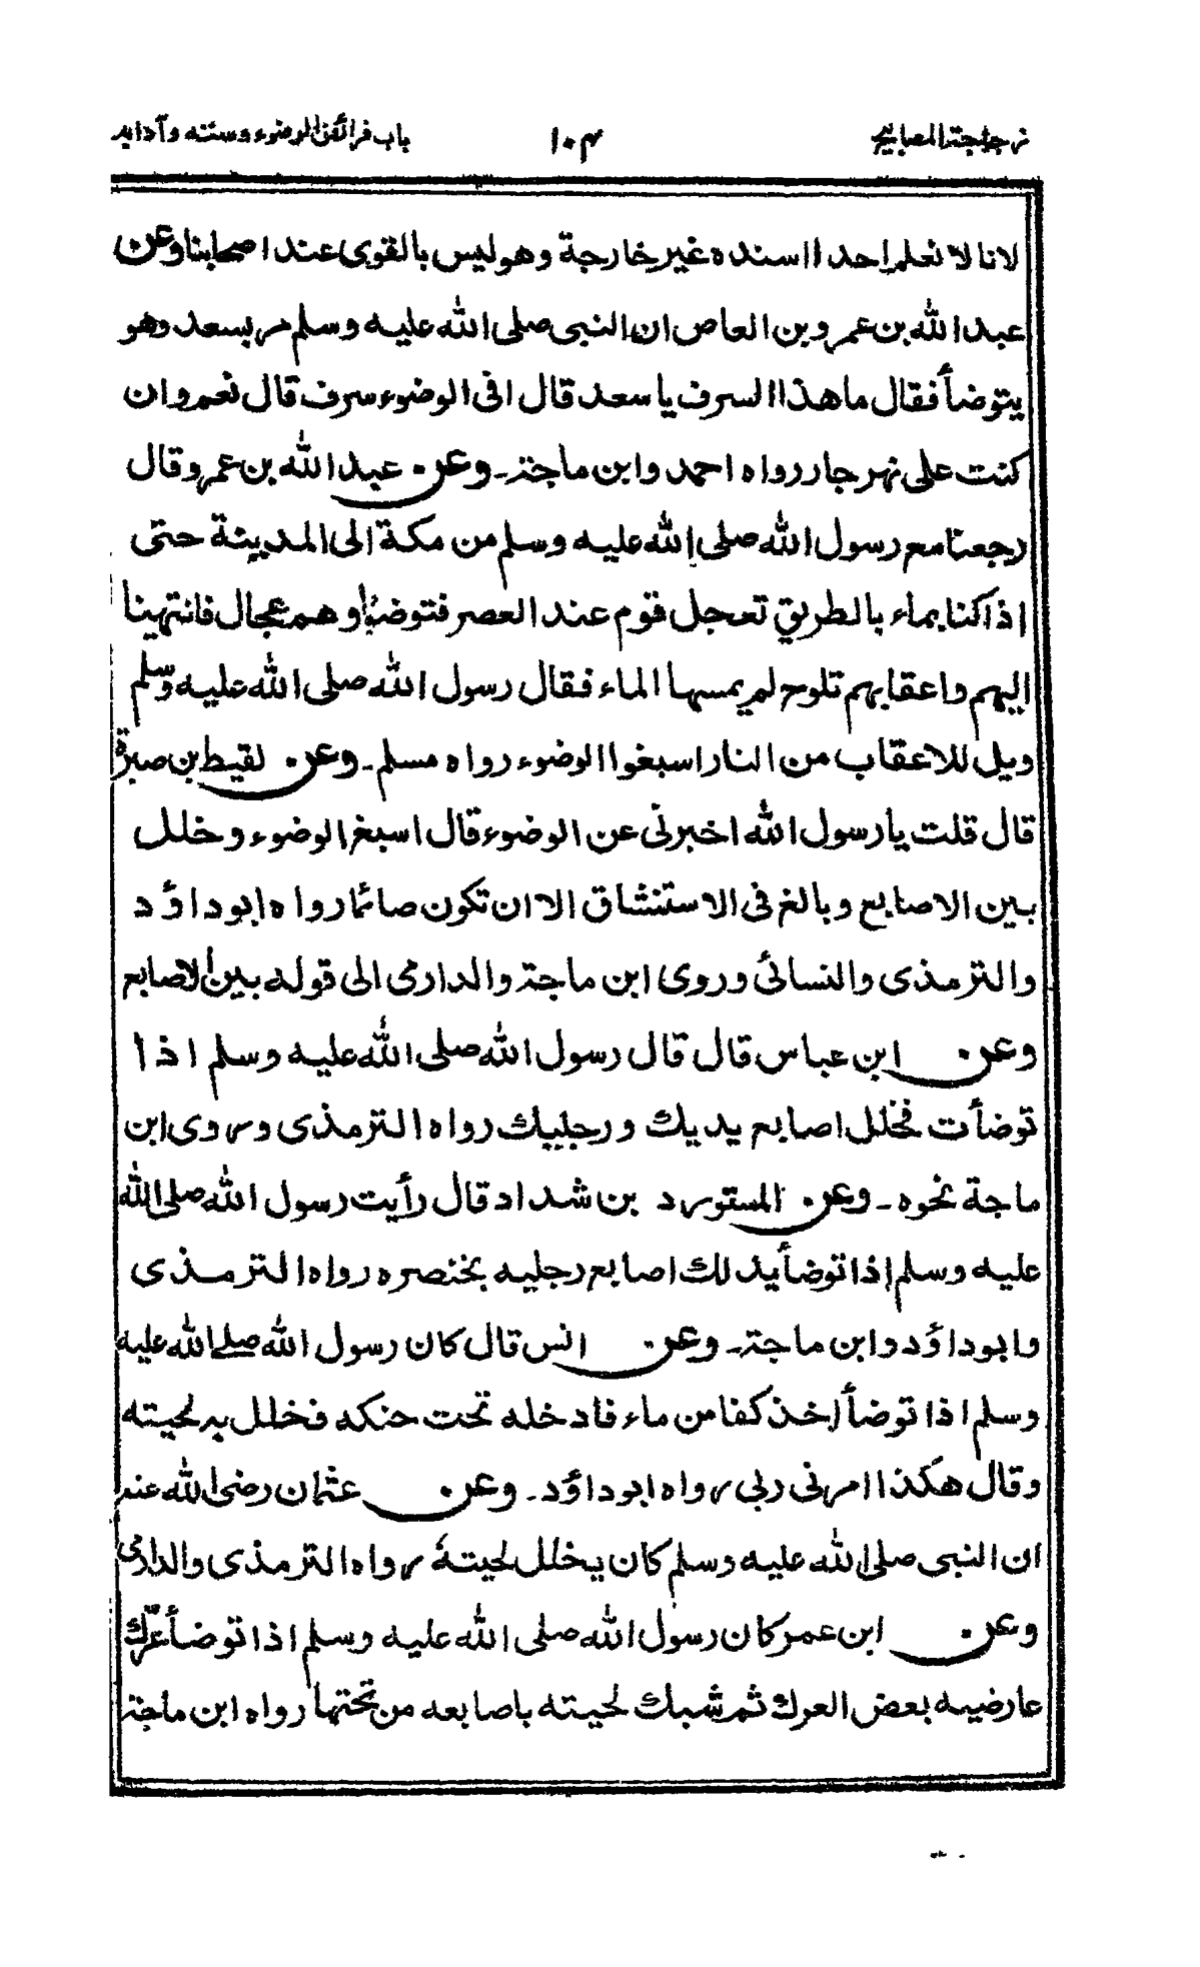 زجاجة المصابيح ١٠٣ باب فرائض الوضوء وسننه وآدابه
لانا لا نعلم احدا اسنده غير خارجة وهو ليس بالقوى عند اصحابنا وعن
عبد الله بن عمرو بن العاص ان النبى صلى الله عليه وسلم مر بسعد وهو
يتوضأ فقال ما هذا السرف يا سعد قال افى الوضوء سرف قال نعم وان
كنت على نهر جار رواه احمد وابن ماجة ـ وعن عبد الله بن عمرو قال
رجعنا مع رسول الله صلى الله عليه وسلم من مكة الى المدينة حتى
اذا كنا بماء بالطريق تعجل قوم عند العصر فتوضؤا وهم عجال فانتهينا
اليهم واعقابهم تلوح لم يمسها الماء فقال رسول الله صلى الله عليه وسلم
ويل للاعقاب من النار اسبغوا الوضوء رواه مسلم ـ وعن لقيط بن صبرة
قال قلت يا رسول الله اخبرنى عن الوضوء قال اسبغ الوضوء وخلل
بين الاصابع وبالغ فى الاستنشاق الا ان تكون صائما رواه ابو داؤد
والترمذى والنسائى وروى ابن ماجة والدارمى الى قوله بين الاصابع
وعن ابن عباس قال قال رسول الله صلى الله عليه وسلم اذا
توضأت فخلل اصابع يديك ورجليك رواه الترمذى وروى ابن
ماجة نحوه ـ وعن المستورد بن شداد قال رأيت رسول الله صلى الله
عليه وسلم اذا توضأ يدلك اصابع رجليه بخنصره رواه الترمذى
وابو داؤد وابن ماجة ـ وعن انس قال كان رسول الله صلى الله عليه
وسلم اذا توضأ اخذ كفا من ماء فادخله تحت حنكه فخلل به لحيته
وقال هكذا امرنى ربى رواه ابو داؤد ـ وعن عثمان رضى الله عنه
ان النبى صلى الله عليه وسلم كان يخلل لحيتهٗ رواه الترمذى والدارمى
وعن ابن عمر كان رسول الله صلى الله عليه وسلم اذا توضأ عرّك
عارضيه بعض العرك ثم شبك لحيته باصابعه من تحتها رواه ابن ماجة